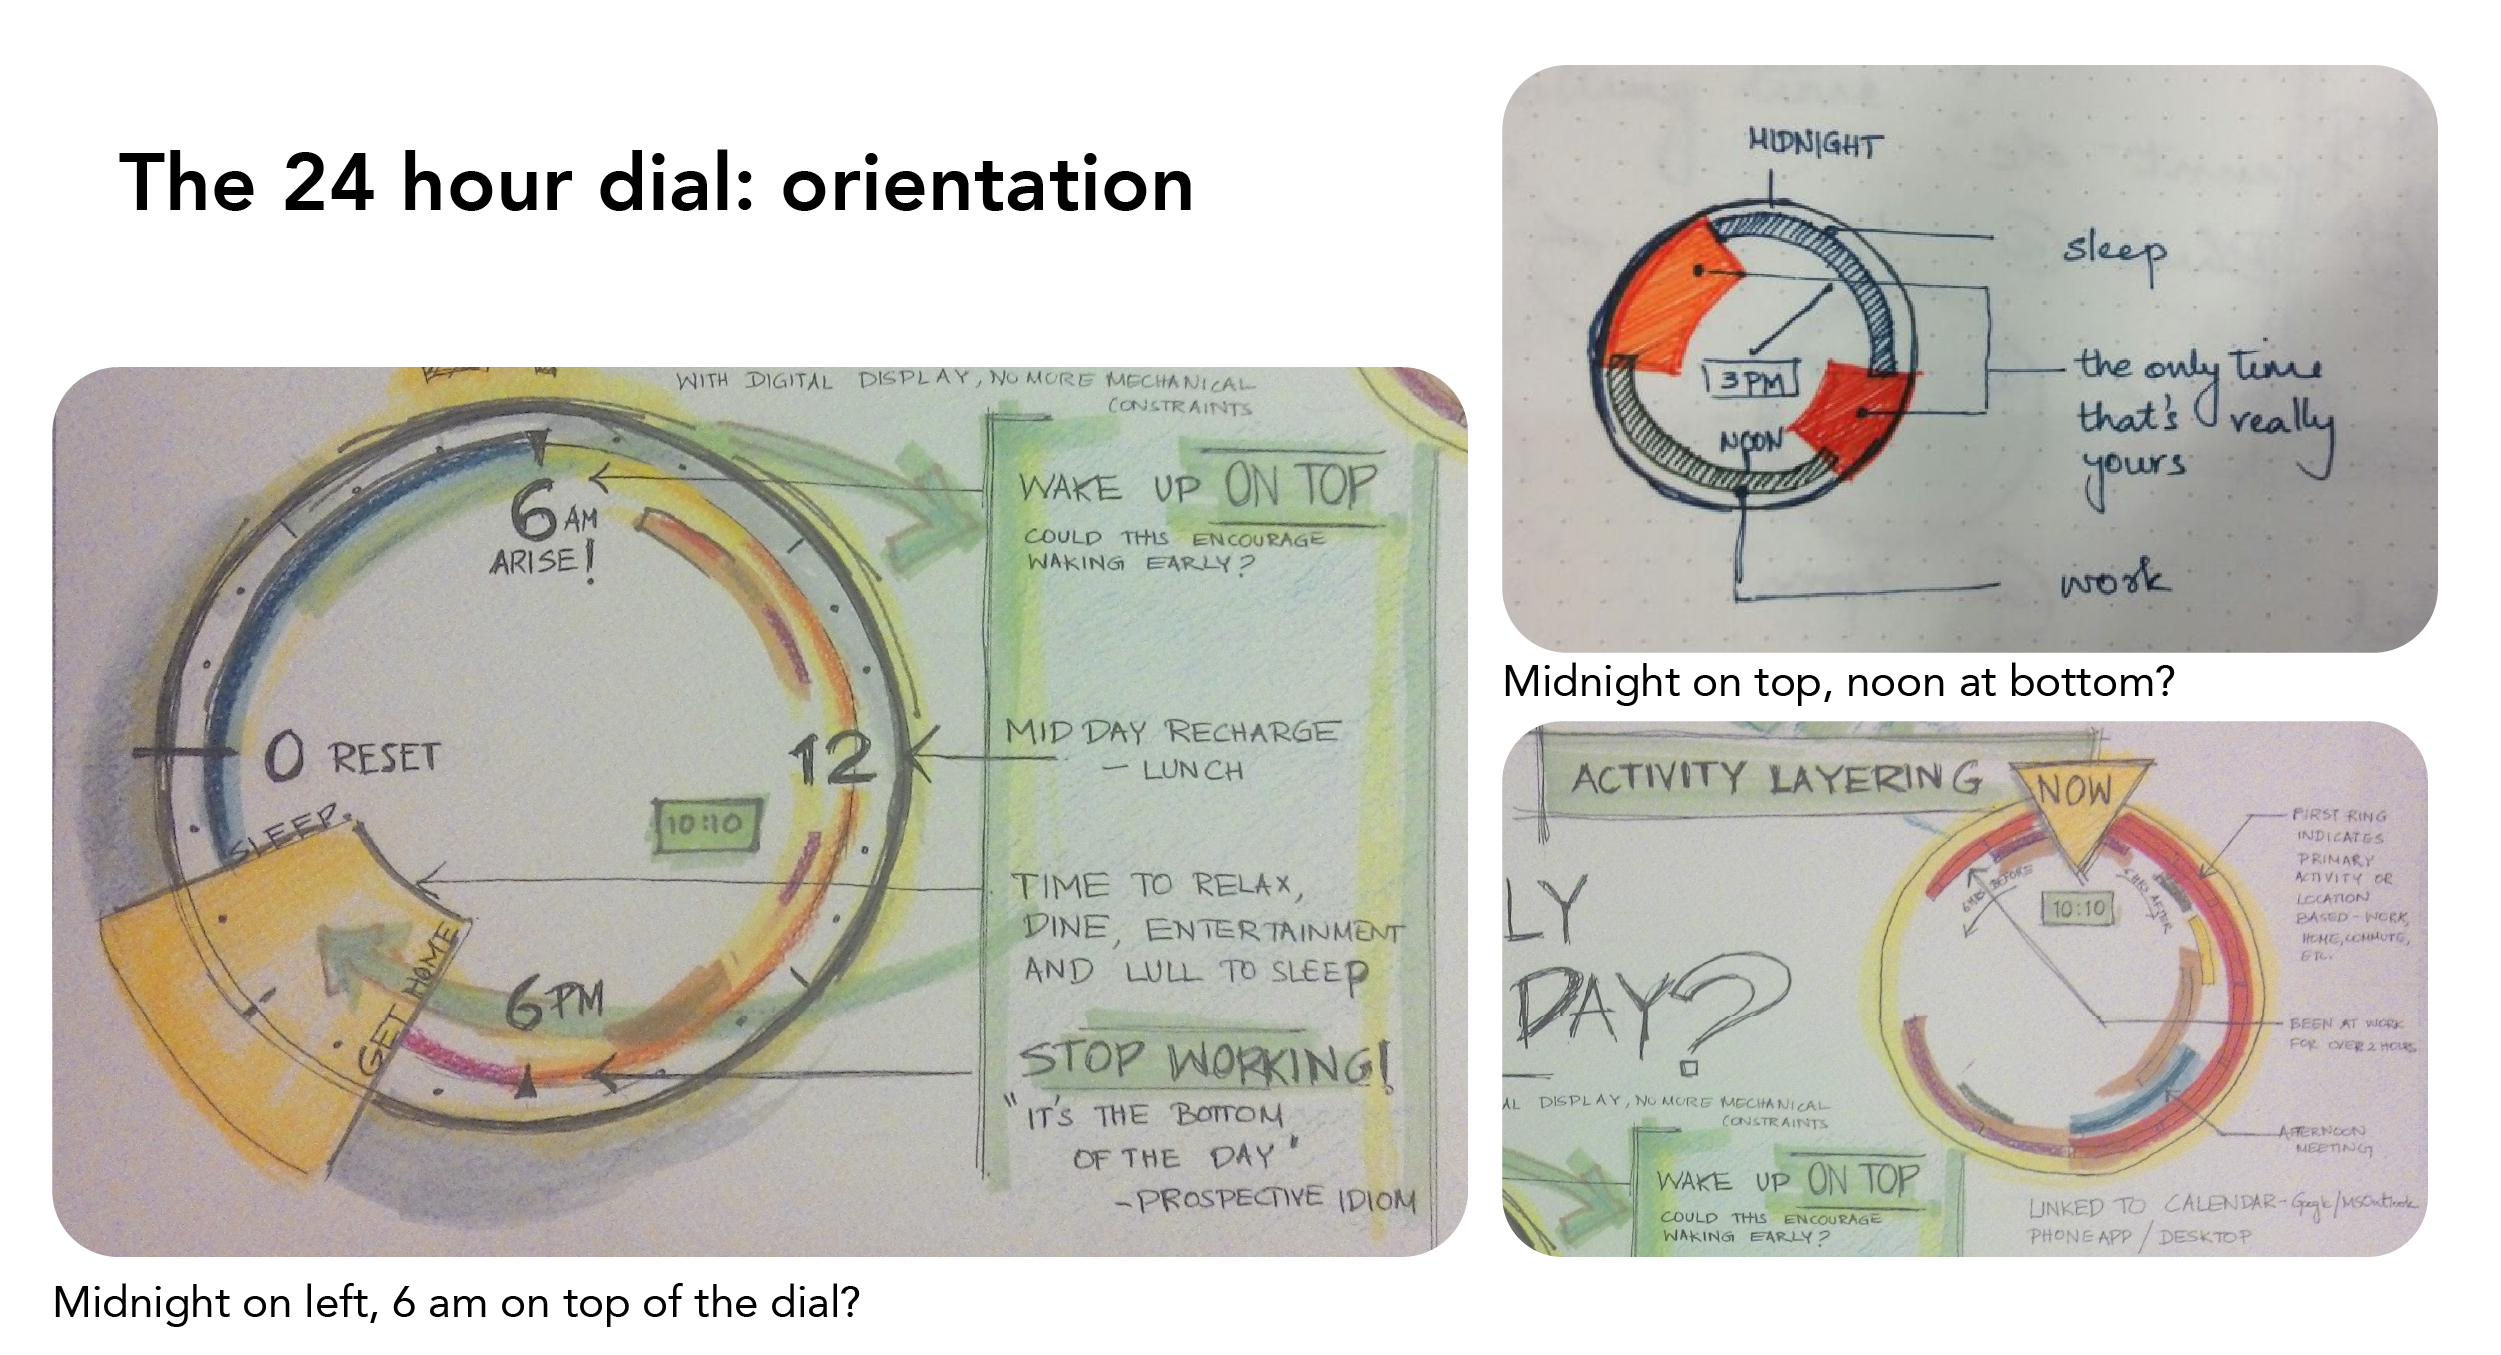 The 24 hour dial: orientation
WITH DIGITAL DISPLAY, NO MORE MECHANICAL
CONSTRAINTS
6 AM
ARISE!
WAKE UP ON TOP
COULD THIS ENCOURAGE
WAKING EARLY?
0 RESET
12
MID DAY RECHARGE
— LUNCH
10:10
SLEEP.
GET HOME
6 PM
TIME TO RELAX,
DINE, ENTERTAINMENT
AND LULL TO SLEEP
STOP WORKING!
"IT'S THE BOTTOM
OF THE DAY"
-PROSPECTIVE IDIOM
Midnight on left, 6 am on top of the dial?
MIDNIGHT
sleep
3PM
NOON
the only time
that's really
yours
work
Midnight on top, noon at bottom?
ACTIVITY LAYERING
NOW
6HRS BEFORE
6HRS AFTER
10:10
FIRST RING
INDICATES
PRIMARY
ACTIVITY OR
LOCATION
BASED - WORK,
HOME, COMMUTE,
ETC.
BEEN AT WORK
FOR OVER 2 HOURS
AFTERNOON
MEETING
LY
DAY?
AL DISPLAY, NO MORE MECHANICAL
CONSTRAINTS
WAKE UP ON TOP
COULD THIS ENCOURAGE
WAKING EARLY?
LINKED TO CALENDAR- /MSOutlook
PHONE APP / DESKTOP